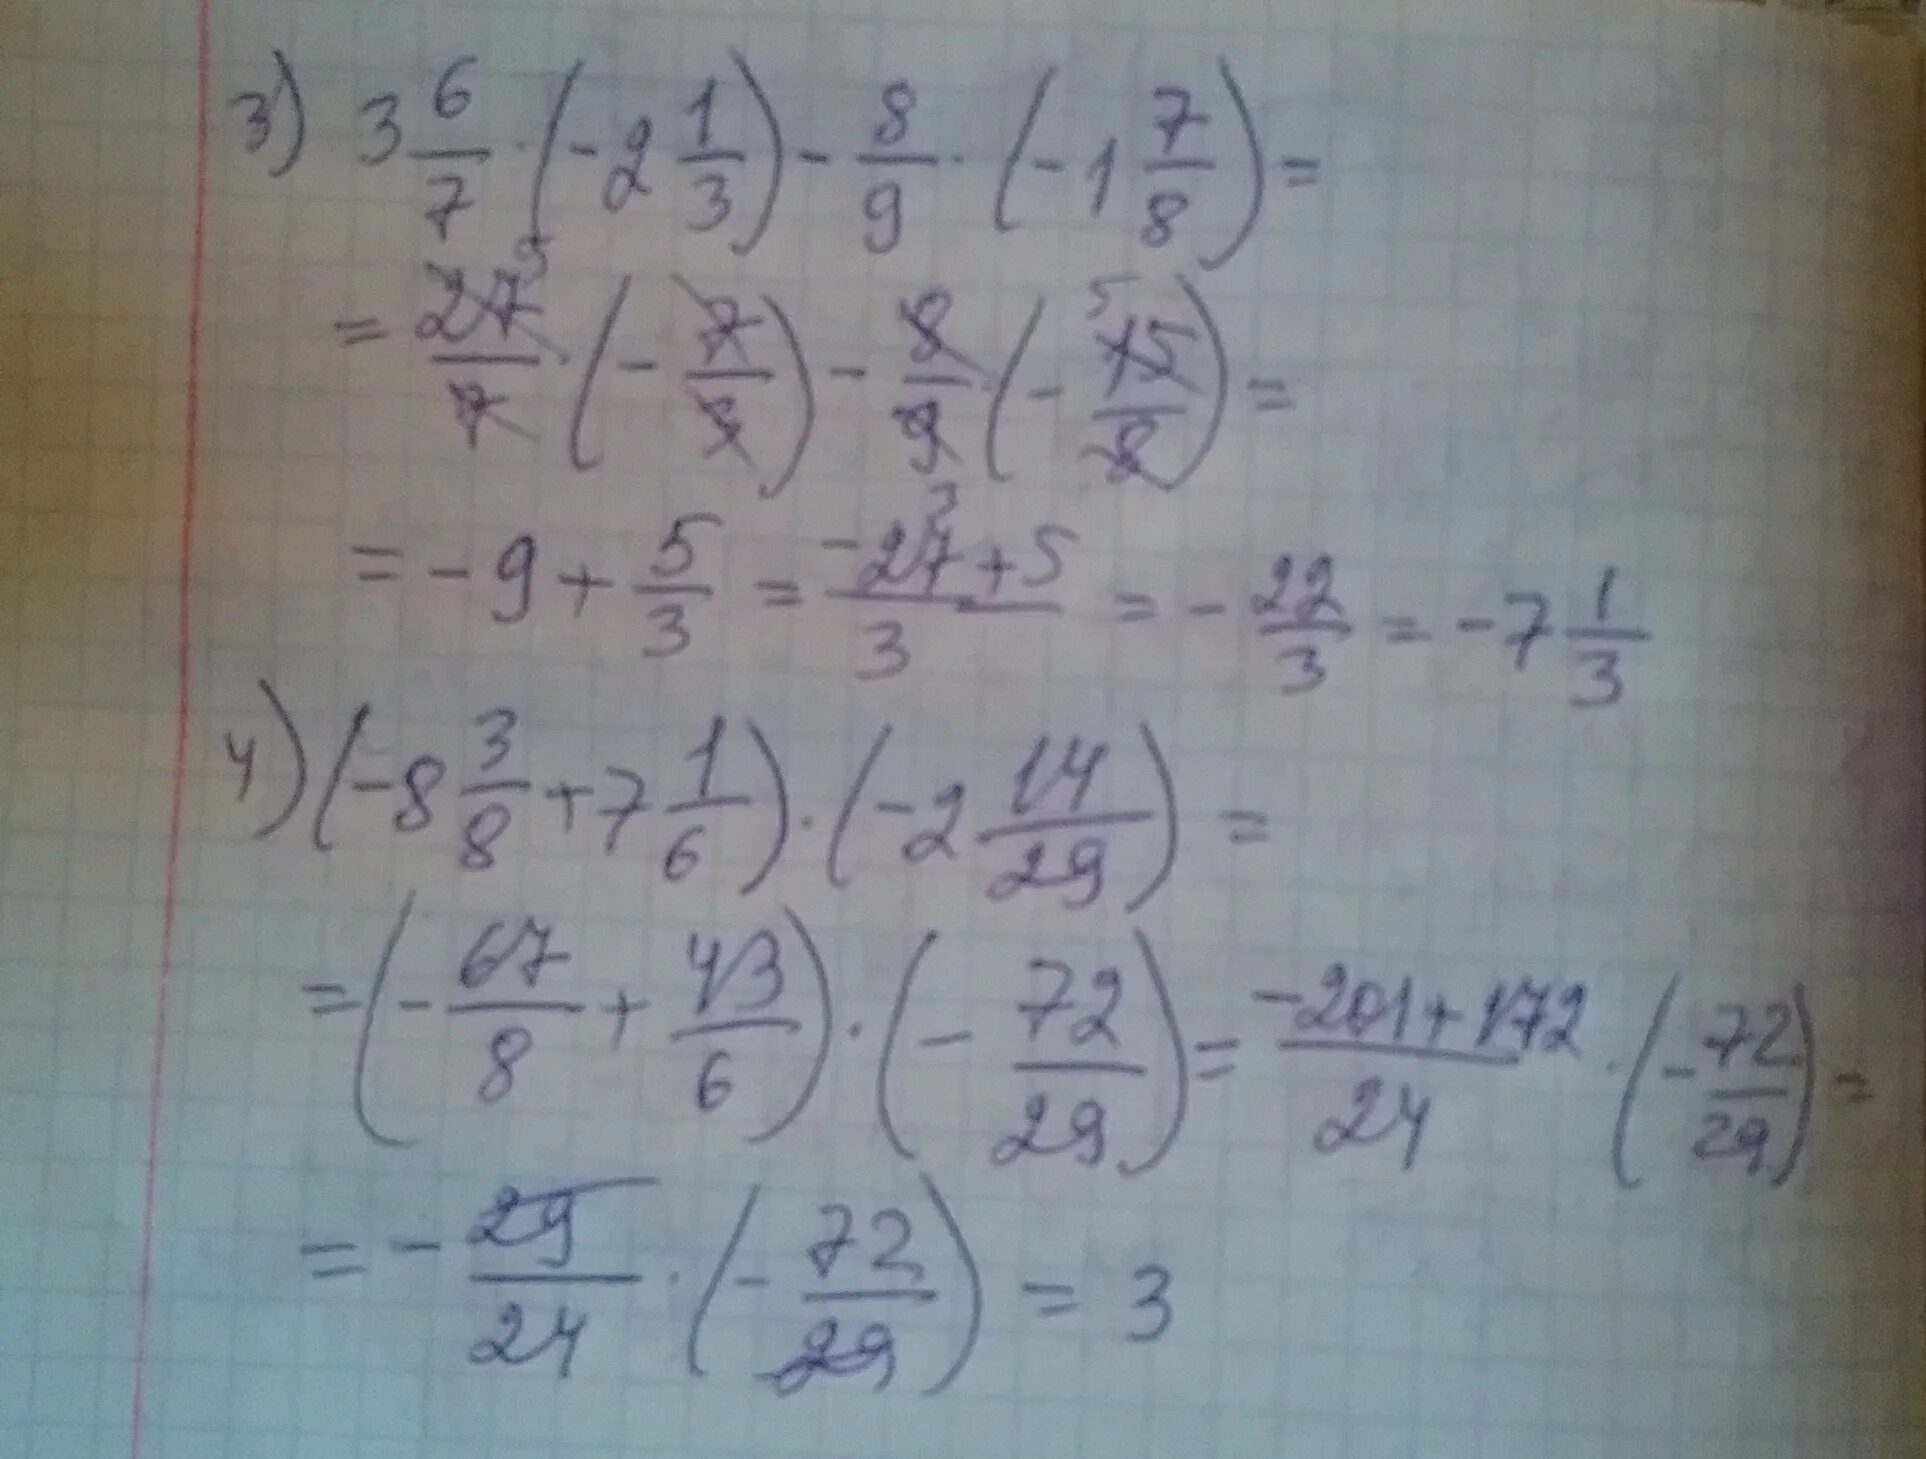 3) 3 6/7 · (-2 1/3) - 8/9 · (-1 7/8) =
= 27/7 · (-7/3) - 8/9 · (-15/8) =
= -9 + 5/3 = (-27+5)/3 = -22/3 = -7 1/3
4) (-8 3/8 + 7 1/6) · (-2 14/29) =
= (-67/8 + 43/6) · (-72/29) = (-201+172)/24 · (-72/29) =
= -29/24 · (-72/29) = 3